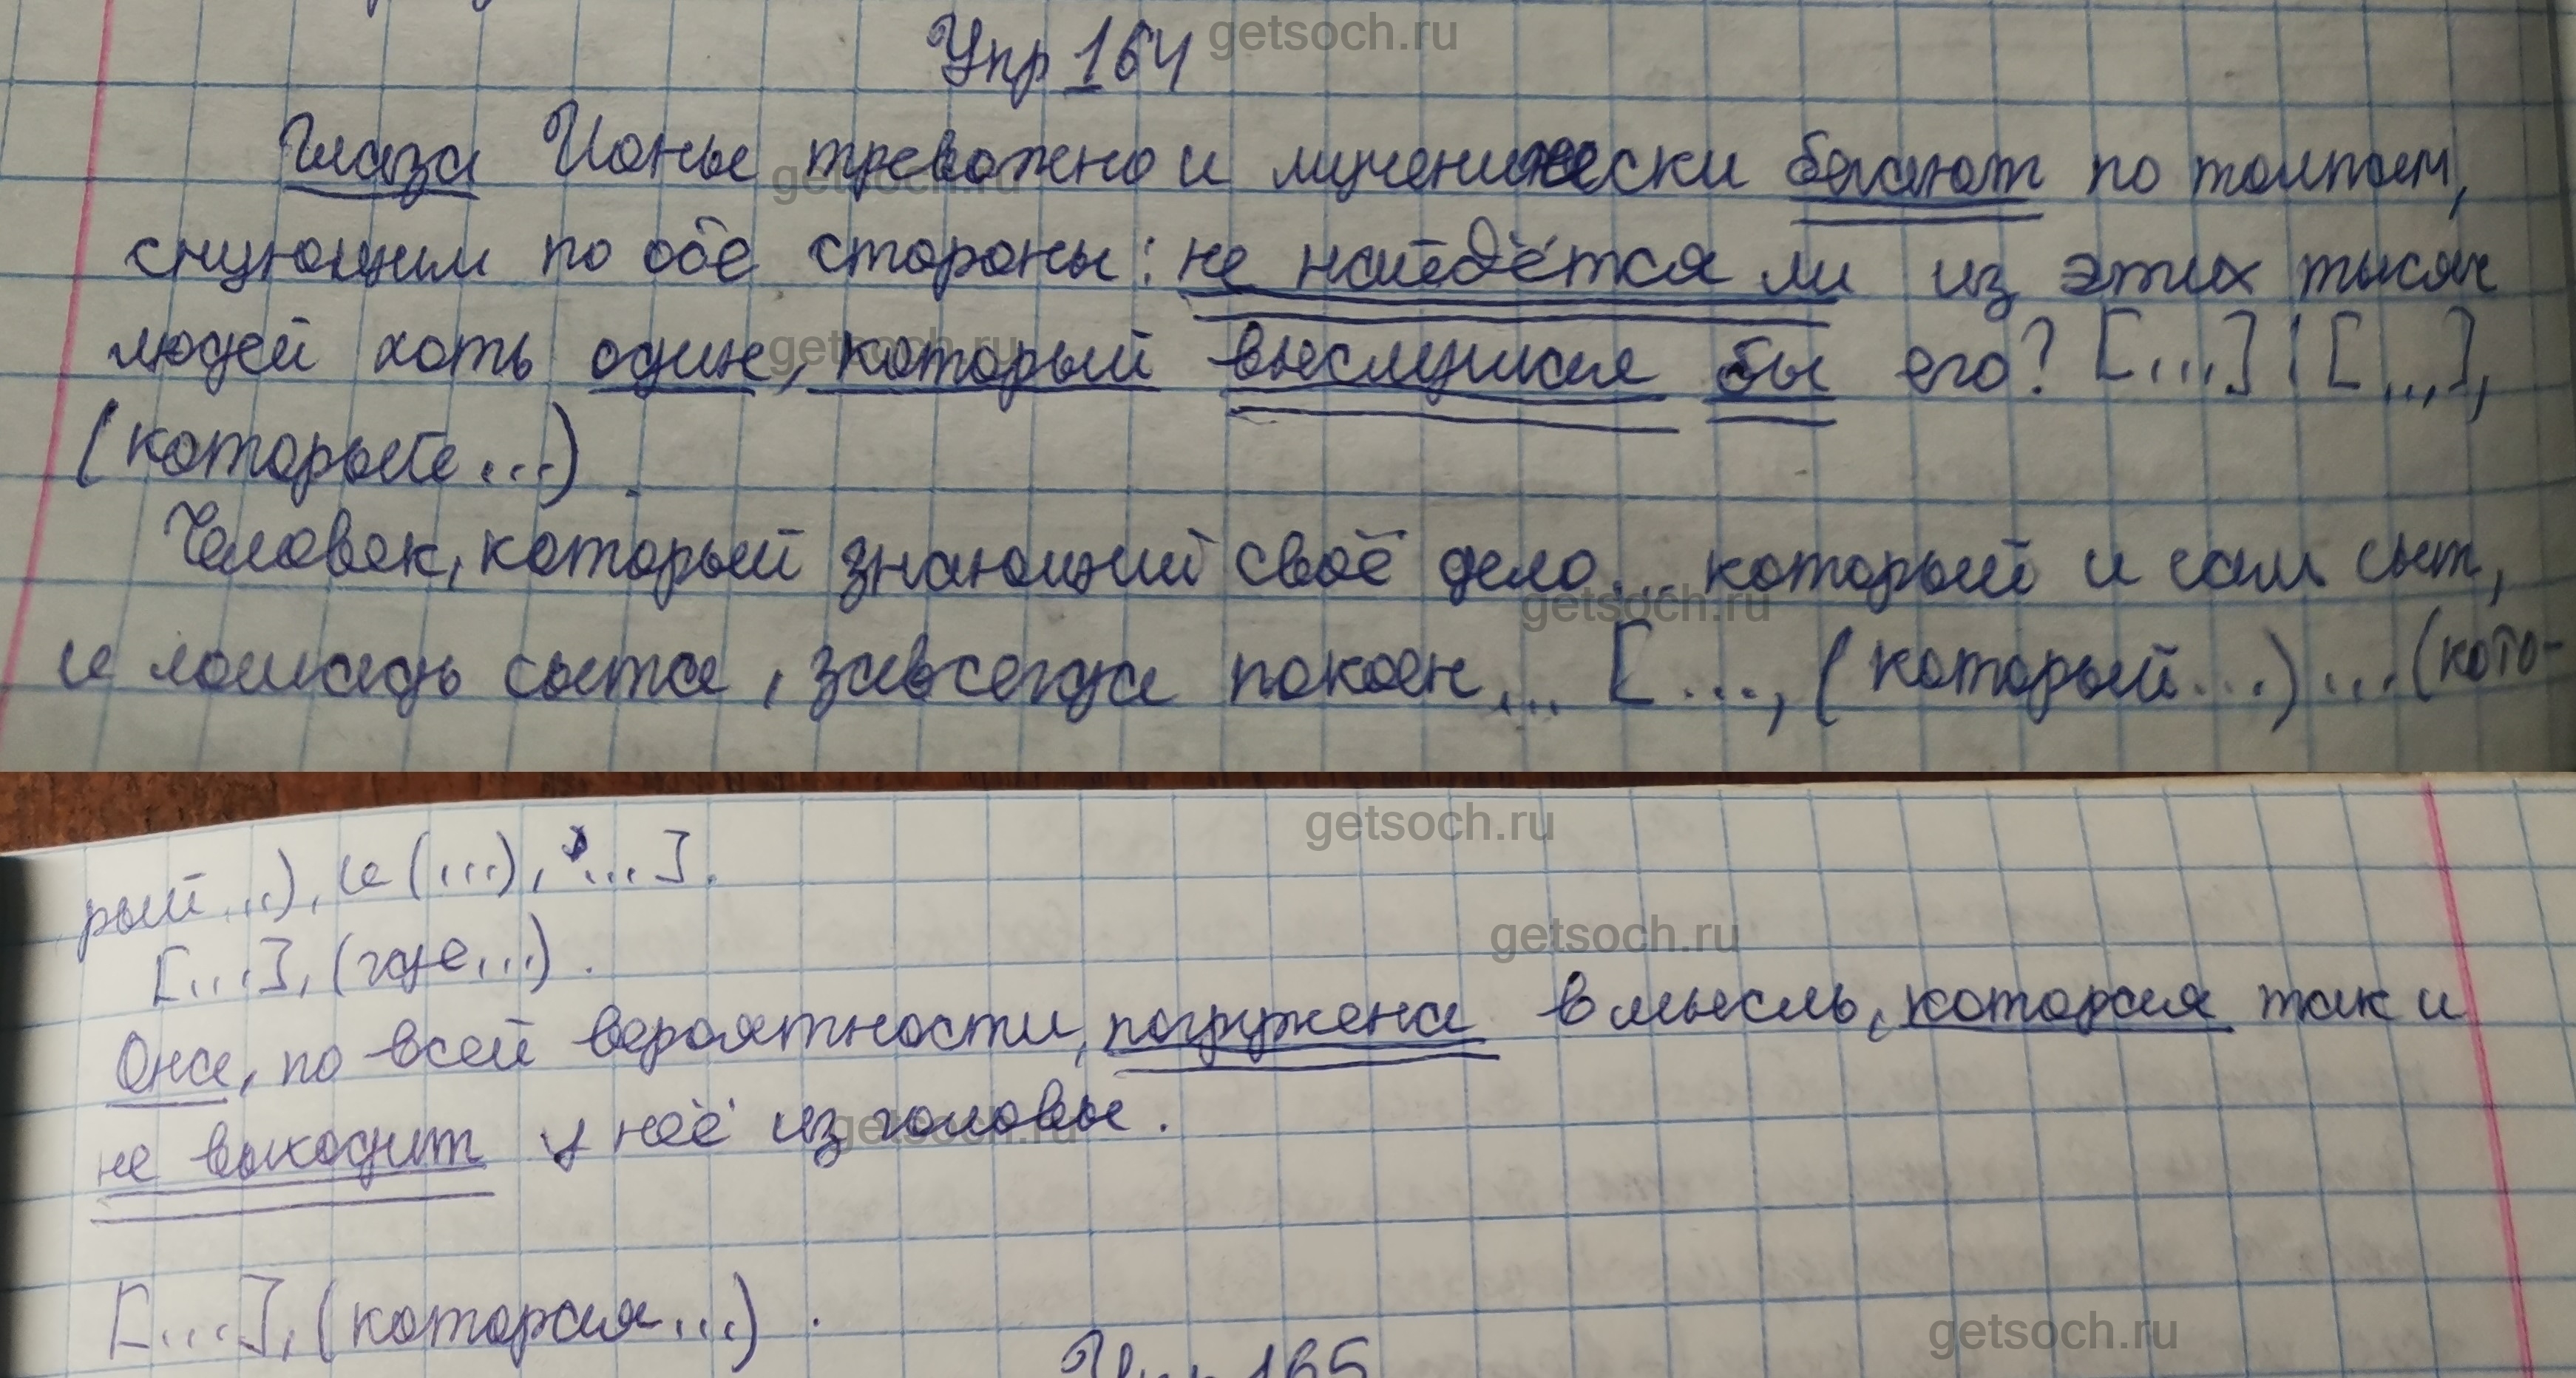 Упр 164
Глаза Ионы тревожно и мученически бегают по толпам,
снующим по обе стороны: не найдётся ли из этих тысяч
людей хоть один, который выслушал бы его? [...] : [...],
(который...).
Человек, который знающий своё дело... который и сам сыт,
и лошадь сыта, завсегда покоен... [..., (который...) ... (кото-
рый...), и (...), ...].
[...], (где...).
Она, по всей вероятности, погружена в мысль, которая так и
не выходит у неё из головы.
[...], (которая...).
Упр 165
getsoch.ru
getsoch.ru
getsoch.ru
getsoch.ru
getsoch.ru
getsoch.ru
getsoch.ru
getsoch.ru